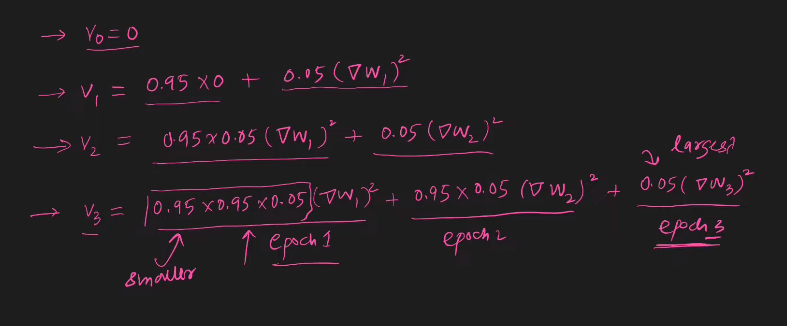 → V₀ = 0
→ V₁ = 0.95 × 0 + 0.05 (∇W₁)²
→ V₂ = 0.95 × 0.05 (∇W₁)² + 0.05 (∇W₂)²
largest
→ V₃ = 0.95 × 0.95 × 0.05 (∇W₁)² + 0.95 × 0.05 (∇W₂)² + 0.05 (∇W₃)²
smaller epoch 1 epoch 2 epoch 3